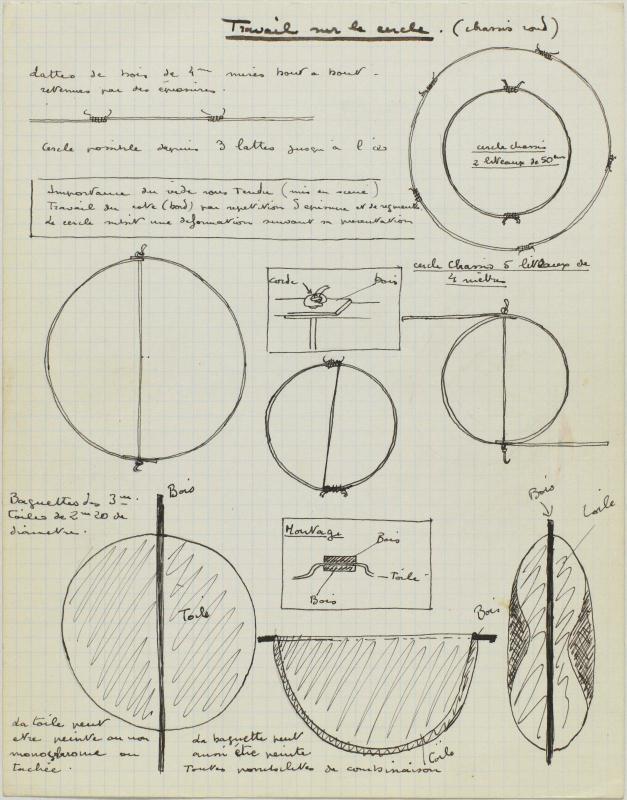 Travail sur le cercle. (chassis rond)
Lattes de bois de 4m mises bout a bout -
retenues par des épissures.
Cercle possible depuis 3 lattes jusqu'à l'
cercle chassis
2 liteaux de 50 cm
Importance du vide sous tendu (mis en scene)
Travail du coté (bord) par repetition d'epissure et de segments
Le cercle subit une deformation suivant sa presentation
cercle chassis 5 liteaux de
4 mètres
corde
bois
Baguettes de 3 m.
toiles de 2m 20 de
diametre.
Bois
Toile
Montage
Bois
Toile
Bois
Bois
Toile
Bois
Toile
La toile peut
etre peinte ou non
monochrome ou
tachée.
La baguette peut
aussi être peinte
Toutes possibilites de combinaison